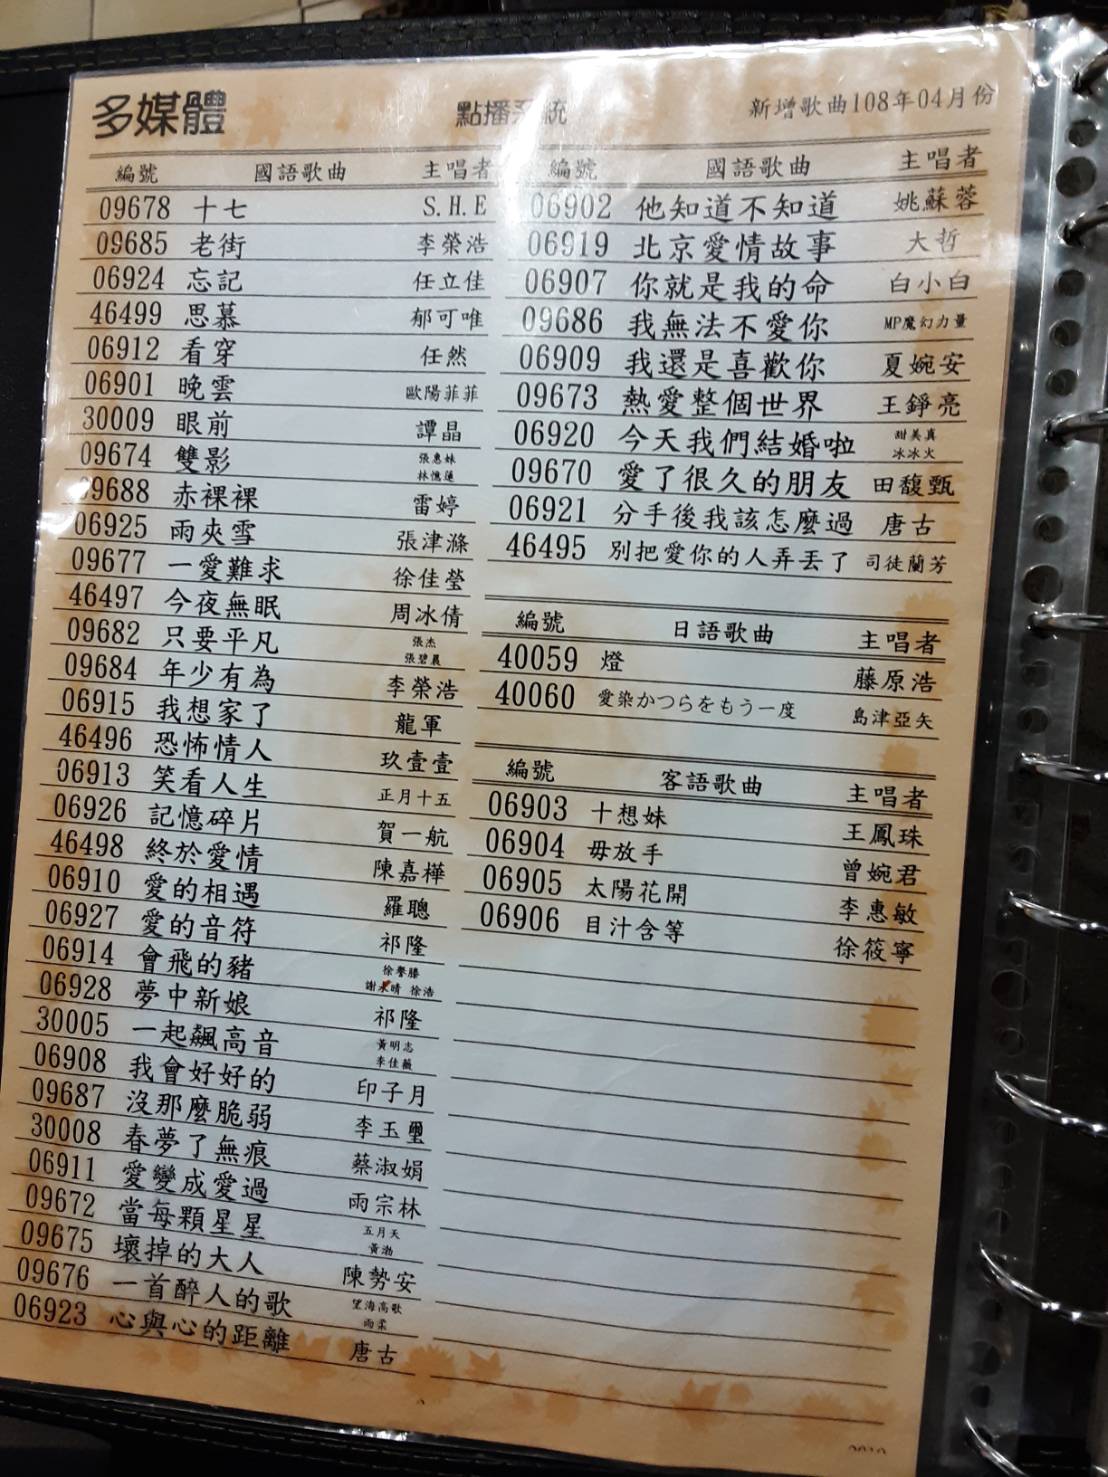 多媒體 點播系統 新增歌曲108年04月份
編號 國語歌曲 主唱者
09678 十七 S.H.E
09685 老街 李榮浩
06924 忘記 任立佳
46499 思慕 郁可唯
06912 看穿 任然
06901 晚雲 歐陽菲菲
30009 眼前 譚晶
09674 雙影 張惠妹 林憶蓮
09688 赤裸裸 雷婷
06925 雨夾雪 張津滌
09677 一愛難求 徐佳瑩
46497 今夜無眠 周冰倩
09682 只要平凡 張杰 張碧晨
09684 年少有為 李榮浩
06915 我想家了 龍軍
46496 恐怖情人 玖壹壹
06913 笑看人生 正月十五
06926 記憶碎片 賀一航
46498 終於愛情 陳嘉樺
06910 愛的相遇 羅聰
06927 愛的音符 祁隆
06914 會飛的豬 徐譽滕 謝永晴 徐浩
06928 夢中新娘 祁隆
30005 一起飆高音 黃明志 李佳薇
06908 我會好好的 印子月
09687 沒那麼脆弱 李玉璽
30008 春夢了無痕 蔡淑娟
06911 愛變成愛過 雨宗林
09672 當每顆星星 五月天 黃渤
09675 壞掉的大人 陳勢安
09676 一首醉人的歌 望海高歌 雨柔
06923 心與心的距離 唐古
編號 國語歌曲 主唱者
06902 他知道不知道 姚蘇蓉
06919 北京愛情故事 大哲
06907 你就是我的命 白小白
09686 我無法不愛你 MP魔幻力量
06909 我還是喜歡你 夏婉安
09673 熱愛整個世界 王錚亮
06920 今天我們結婚啦 甜美真 冰冰火
09670 愛了很久的朋友 田馥甄
06921 分手後我該怎麼過 唐古
46495 別把愛你的人弄丟了 司徒蘭芳
編號 日語歌曲 主唱者
40059 燈 藤原浩
40060 愛染かつらをもう一度 島津亞矢
編號 客語歌曲 主唱者
06903 十想妹 王鳳珠
06904 毋放手 曾婉君
06905 太陽花開 李惠敏
06906 目汁含等 徐筱寧